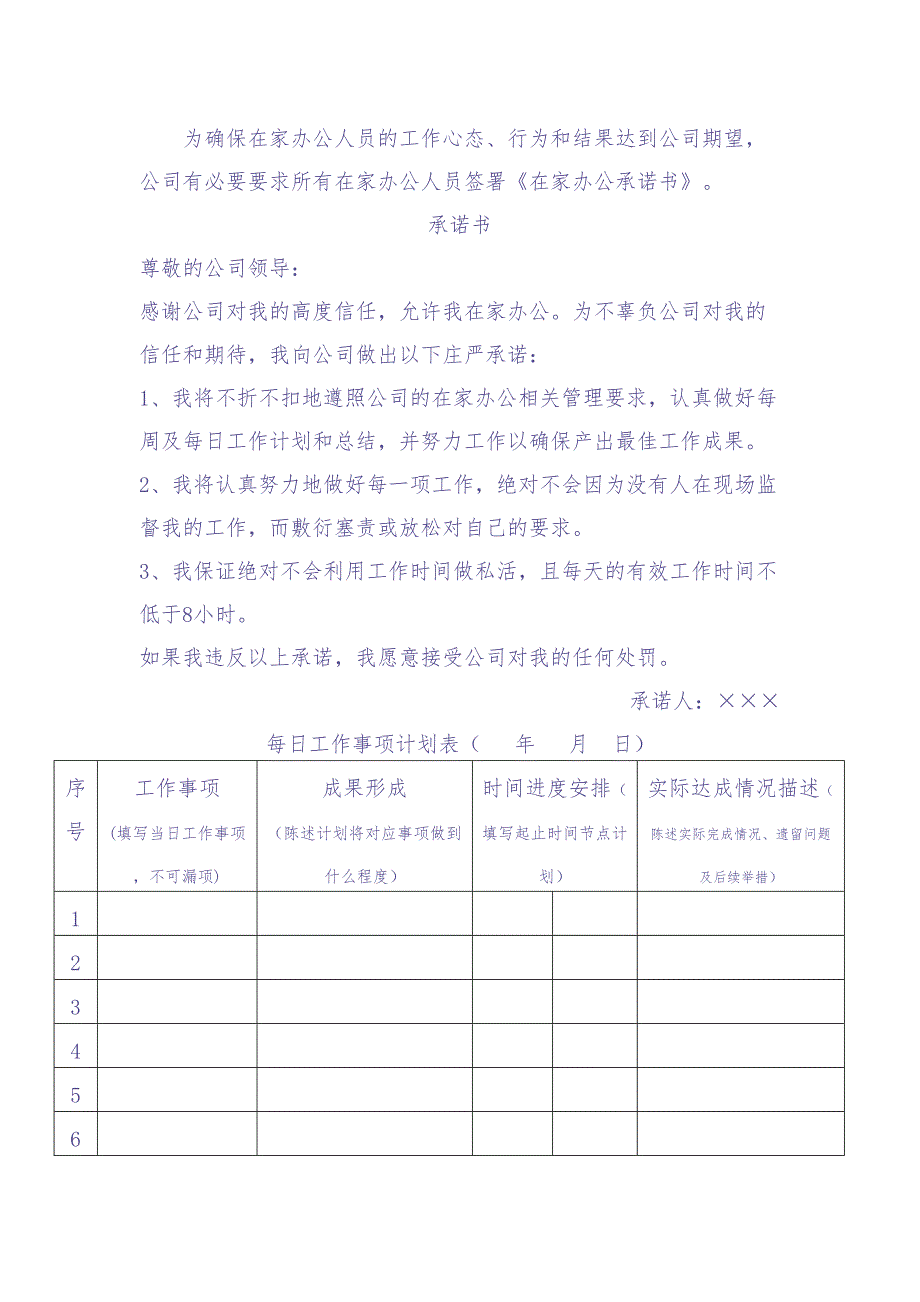 为确保在家办公人员的工作心态、行为和结果达到公司期望，
公司有必要要求所有在家办公人员签署《在家办公承诺书》。
承诺书
尊敬的公司领导：
感谢公司对我的高度信任，允许我在家办公。为不辜负公司对我的
信任和期待，我向公司做出以下庄严承诺：
1、我将不折不扣地遵照公司的在家办公相关管理要求，认真做好每
周及每日工作计划和总结，并努力工作以确保产出最佳工作成果。
2、我将认真努力地做好每一项工作，绝对不会因为没有人在现场监
督我的工作，而敷衍塞责或放松对自己的要求。
3、我保证绝对不会利用工作时间做私活，且每天的有效工作时间不
低于8小时。
如果我违反以上承诺，我愿意接受公司对我的任何处罚。
承诺人：×××
每日工作事项计划表（ 年 月 日）
序 工作事项 成果形成 时间进度安排（ 实际达成情况描述（
号 (填写当日工作事项 （陈述计划将对应事项做到 填写起止时间节点计 陈述实际完成情况、遗留问题
，不可漏项) 什么程度） 划） 及后续举措）
1
2
3
4
5
6